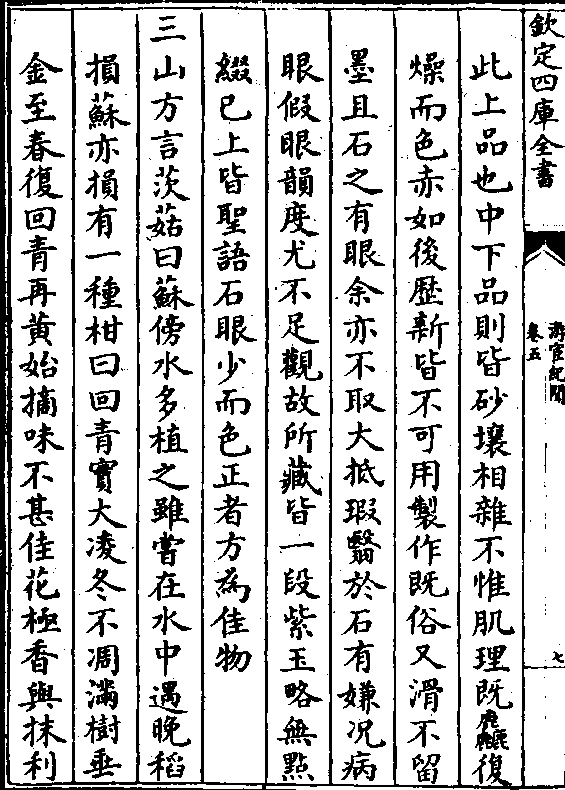 欽定四庫全書
游宦紀聞
卷五
七
此上品也中下品則皆砂壤相雜不惟肌理既麤復
燥而色赤如後歷新皆不可用製作既俗又滑不留
墨且石之有眼余亦不取大抵瑕翳於石有嫌况病
眼假眼韻度尤不足觀故所藏皆一段紫玉略無點
綴已上皆聖語石眼少而色正者方為佳物
三山方言茨菇曰蘇傍水多植之雖嘗在水中遇晚稻
損蘇亦損有一種柑曰回青實大凌冬不凋滿樹垂
金至春復回青再黄始摘味不甚佳花極香與抹利